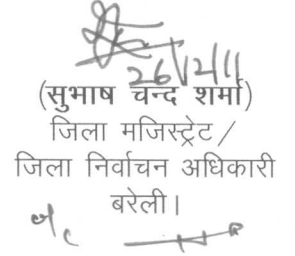 26/12/11
(सुभाष चन्द शर्मा)
जिला मजिस्ट्रेट /
जिला निर्वाचन अधिकारी
बरेली।